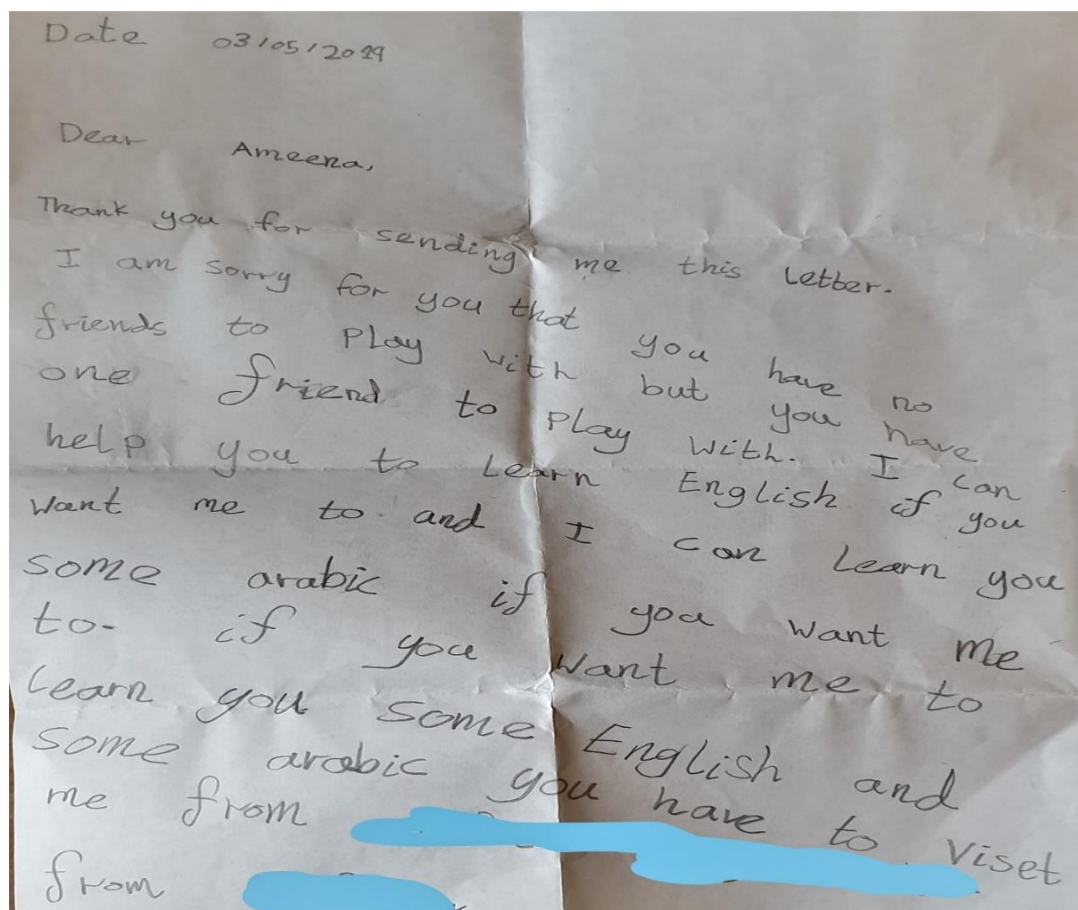 Date 03/05/2019
Dear Ameena,
Thank you for sending me this letter.
I am sorry for you that you have no
friends to play with but you have
one friend to play with. I can
help you to learn English if you
want me to and I can learn you
some arabic if you want me
to. if you want me to
learn you some English and
some arabic you have to viset
me from
from